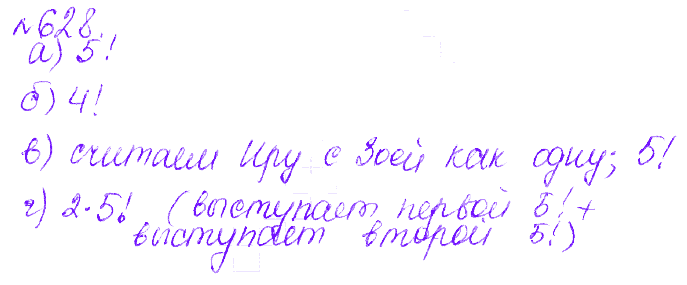 №628.
а) 5!
б) 4!
в) считаем Иру с Зоей как одну; 5!
г) 2·5! (выступает первой 5! +
выступает второй 5!)